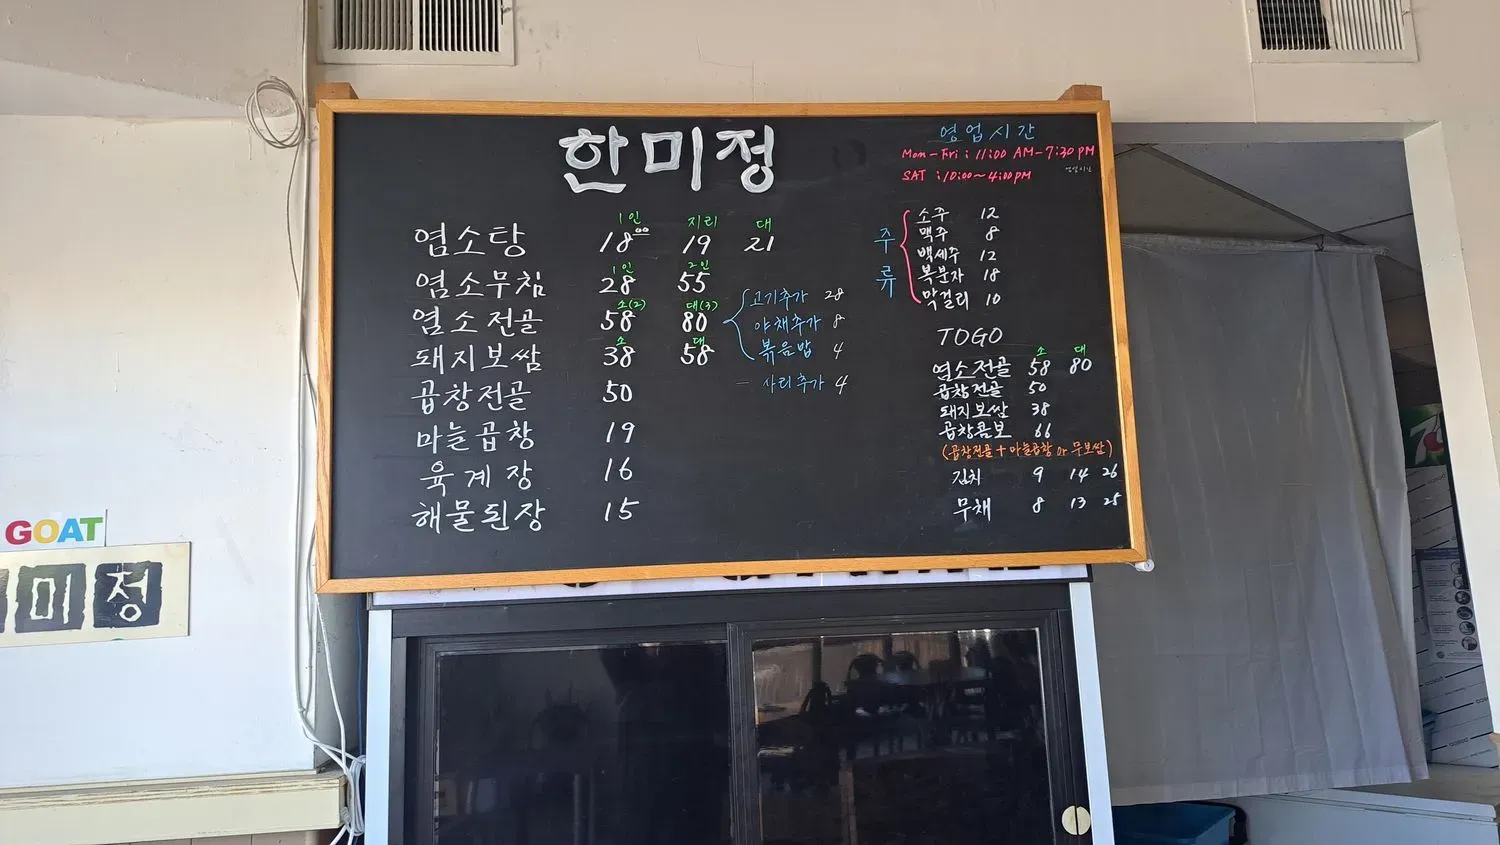 한미정
영업시간
Mon-Fri: 11:00 AM-7:30 PM
SAT : 10:00~4:00PM
1인 지리 대
염소탕 18.00 19 21
1인 2인
염소무침 28 55
소(2) 대(3)
염소전골 58 80
소 대
돼지보쌈 38 58
곱창전골 50
마늘곱창 19
육계장 16
해물된장 15
고기추가 28
야채추가 8
볶음밥 4
- 사리추가 4
주류
소주 12
맥주 8
백세주 12
복분자 18
막걸리 10
TOGO
소 대
염소전골 58 80
곱창전골 50
돼지보쌈 38
곱창콤보 66
(곱창전골 + 마늘곱창 or 무보쌈)
김치 9 14 26
무채 8 13 25
GOAT
미정